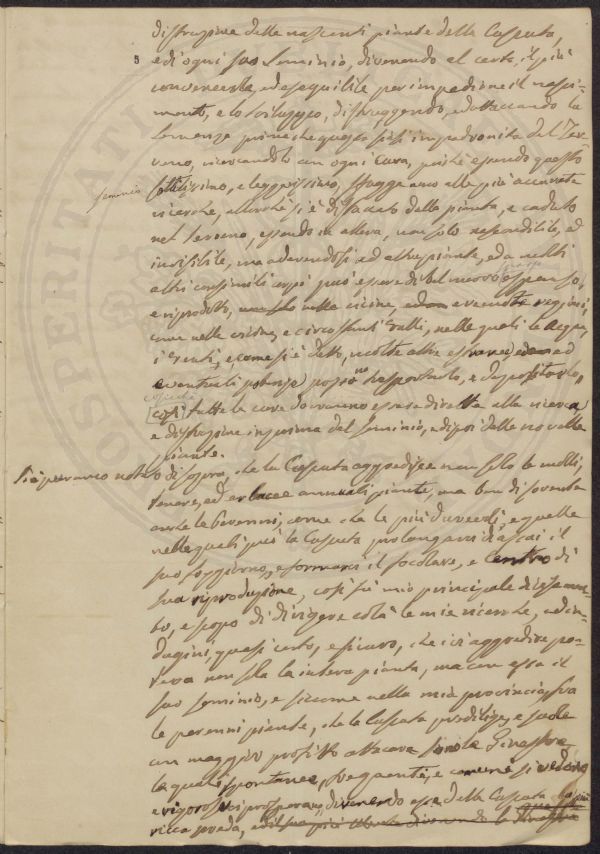 distruzione delle nascenti piante della Cuscuta,
e di ogni suo seminio, divenendo al certo, il più
convenevole, ed eseguibile per impedirne il nasci-
mento, e lo sviluppo, distruggendo, ed attaccando la
semenza prima che questa siasi impadronita del Ter-
reno, ricercandolo con ogni cura, poiché essendo questo
seminio
sottilissimo, e leggerissimo, sfugge anco alle più accurate
ricerche, allorché si è distaccato dalla pianta, e caduto
nel terreno, essendo in allora, non solo nascondibile, ed
invisibile, ma aderendosi ad altre piante, ed a molti
altri consimili corpi può essere di bel nuovo espanso,
e riprodotto, non solo nelle vicine, ed a vecchie regioni,
come nelle vicine, e circostanti Valli, nelle quali le acque,
i venti, e come si è detto, molte altre estranee ed
eventuali potenze possono trasportarlo, e depositarlo,
così tutte le cure dovranno essere dirette alla ricerca
e distruzione in prima del seminio, e di poi delle novelle
piante.
Si è per anco notato di sopra, che la Cuscuta aggredisce non solo le molli,
tenere, ed erbacee annuali piante, ma ben di sovente
anche le Perenni, come che le più durevoli, e quelle
nelle quali può la Cuscuta prolungarvi d'assai il
suo soggiorno, e formarvi il focolare, e centro di
sua riproduzione, così fu mio principale
e scopo di dirigere colà le mie ricerche, ed in-
dagini, quasi certo, e sicuro, che ivi aggredire po-
teva non solo la intera pianta, ma con essa il
suo seminio, e siccome nella mia provincia fra
le perenni piante, che la Cuscuta predilige, e suole
con maggior profitto attaccare sono le Ginestre
le quali spontanee, frequenti, e comuni si vedono
e vigorose vi prosperano, divenendo esse della Cuscuta
ricca preda,